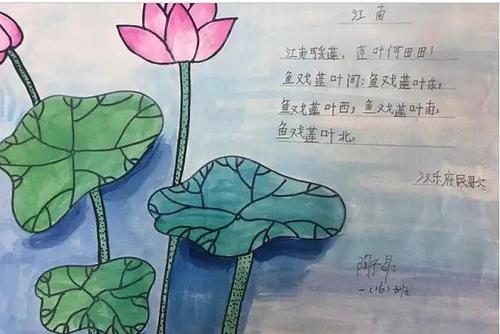 江南
江南可采莲，莲叶何田田！
鱼戏莲叶间：鱼戏莲叶东，
鱼戏莲叶西，鱼戏莲叶南，
鱼戏莲叶北。
汉乐府民歌
一（16）班